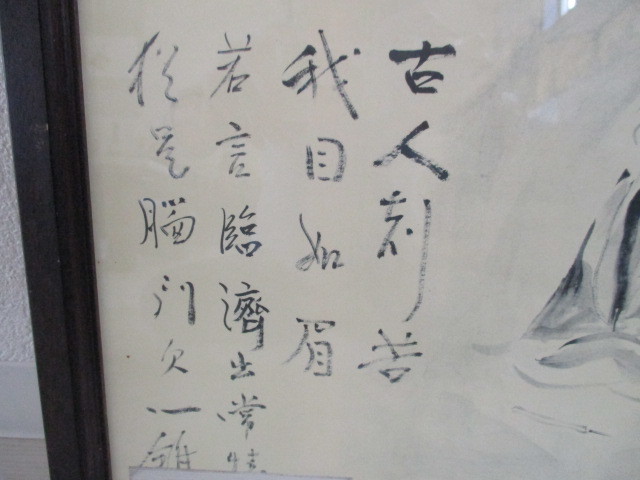 古人刻苦
我目如眉
若言臨濟出常情
猶是腦門欠一錐